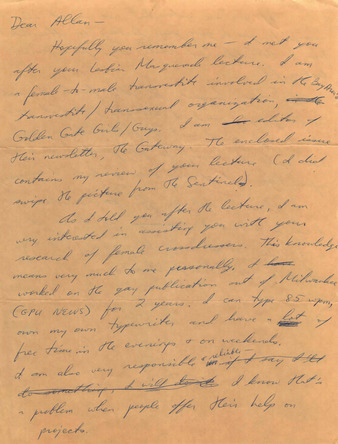 Dear Allan —
Hopefully you remember me — I met you
after your Lesbian Masquerade lecture. I am
a female-to-male transvestite involved in the Bay Area
transvestite/transsexual organization,
Golden Gate Girls/Guys. I am editor of
their newsletter, the Gateway. The enclosed issue
contains my review of your lecture (I did
swipe the picture from the Sentinel).
As I told you after the lecture, I am
very interested in assisting you with your
research of female crossdressers. This knowledge
means very much to me personally. I
worked on the gay publication out of Milwaukee
(GPU NEWS) for 2 years. I can type 85 wpm,
own my own typewriter and have a lot of
free time in the evenings & on weekends.
I am also very responsible & reliable if I say I'll
do something, I will do it I know that's
a problem when people offer their help on
projects.